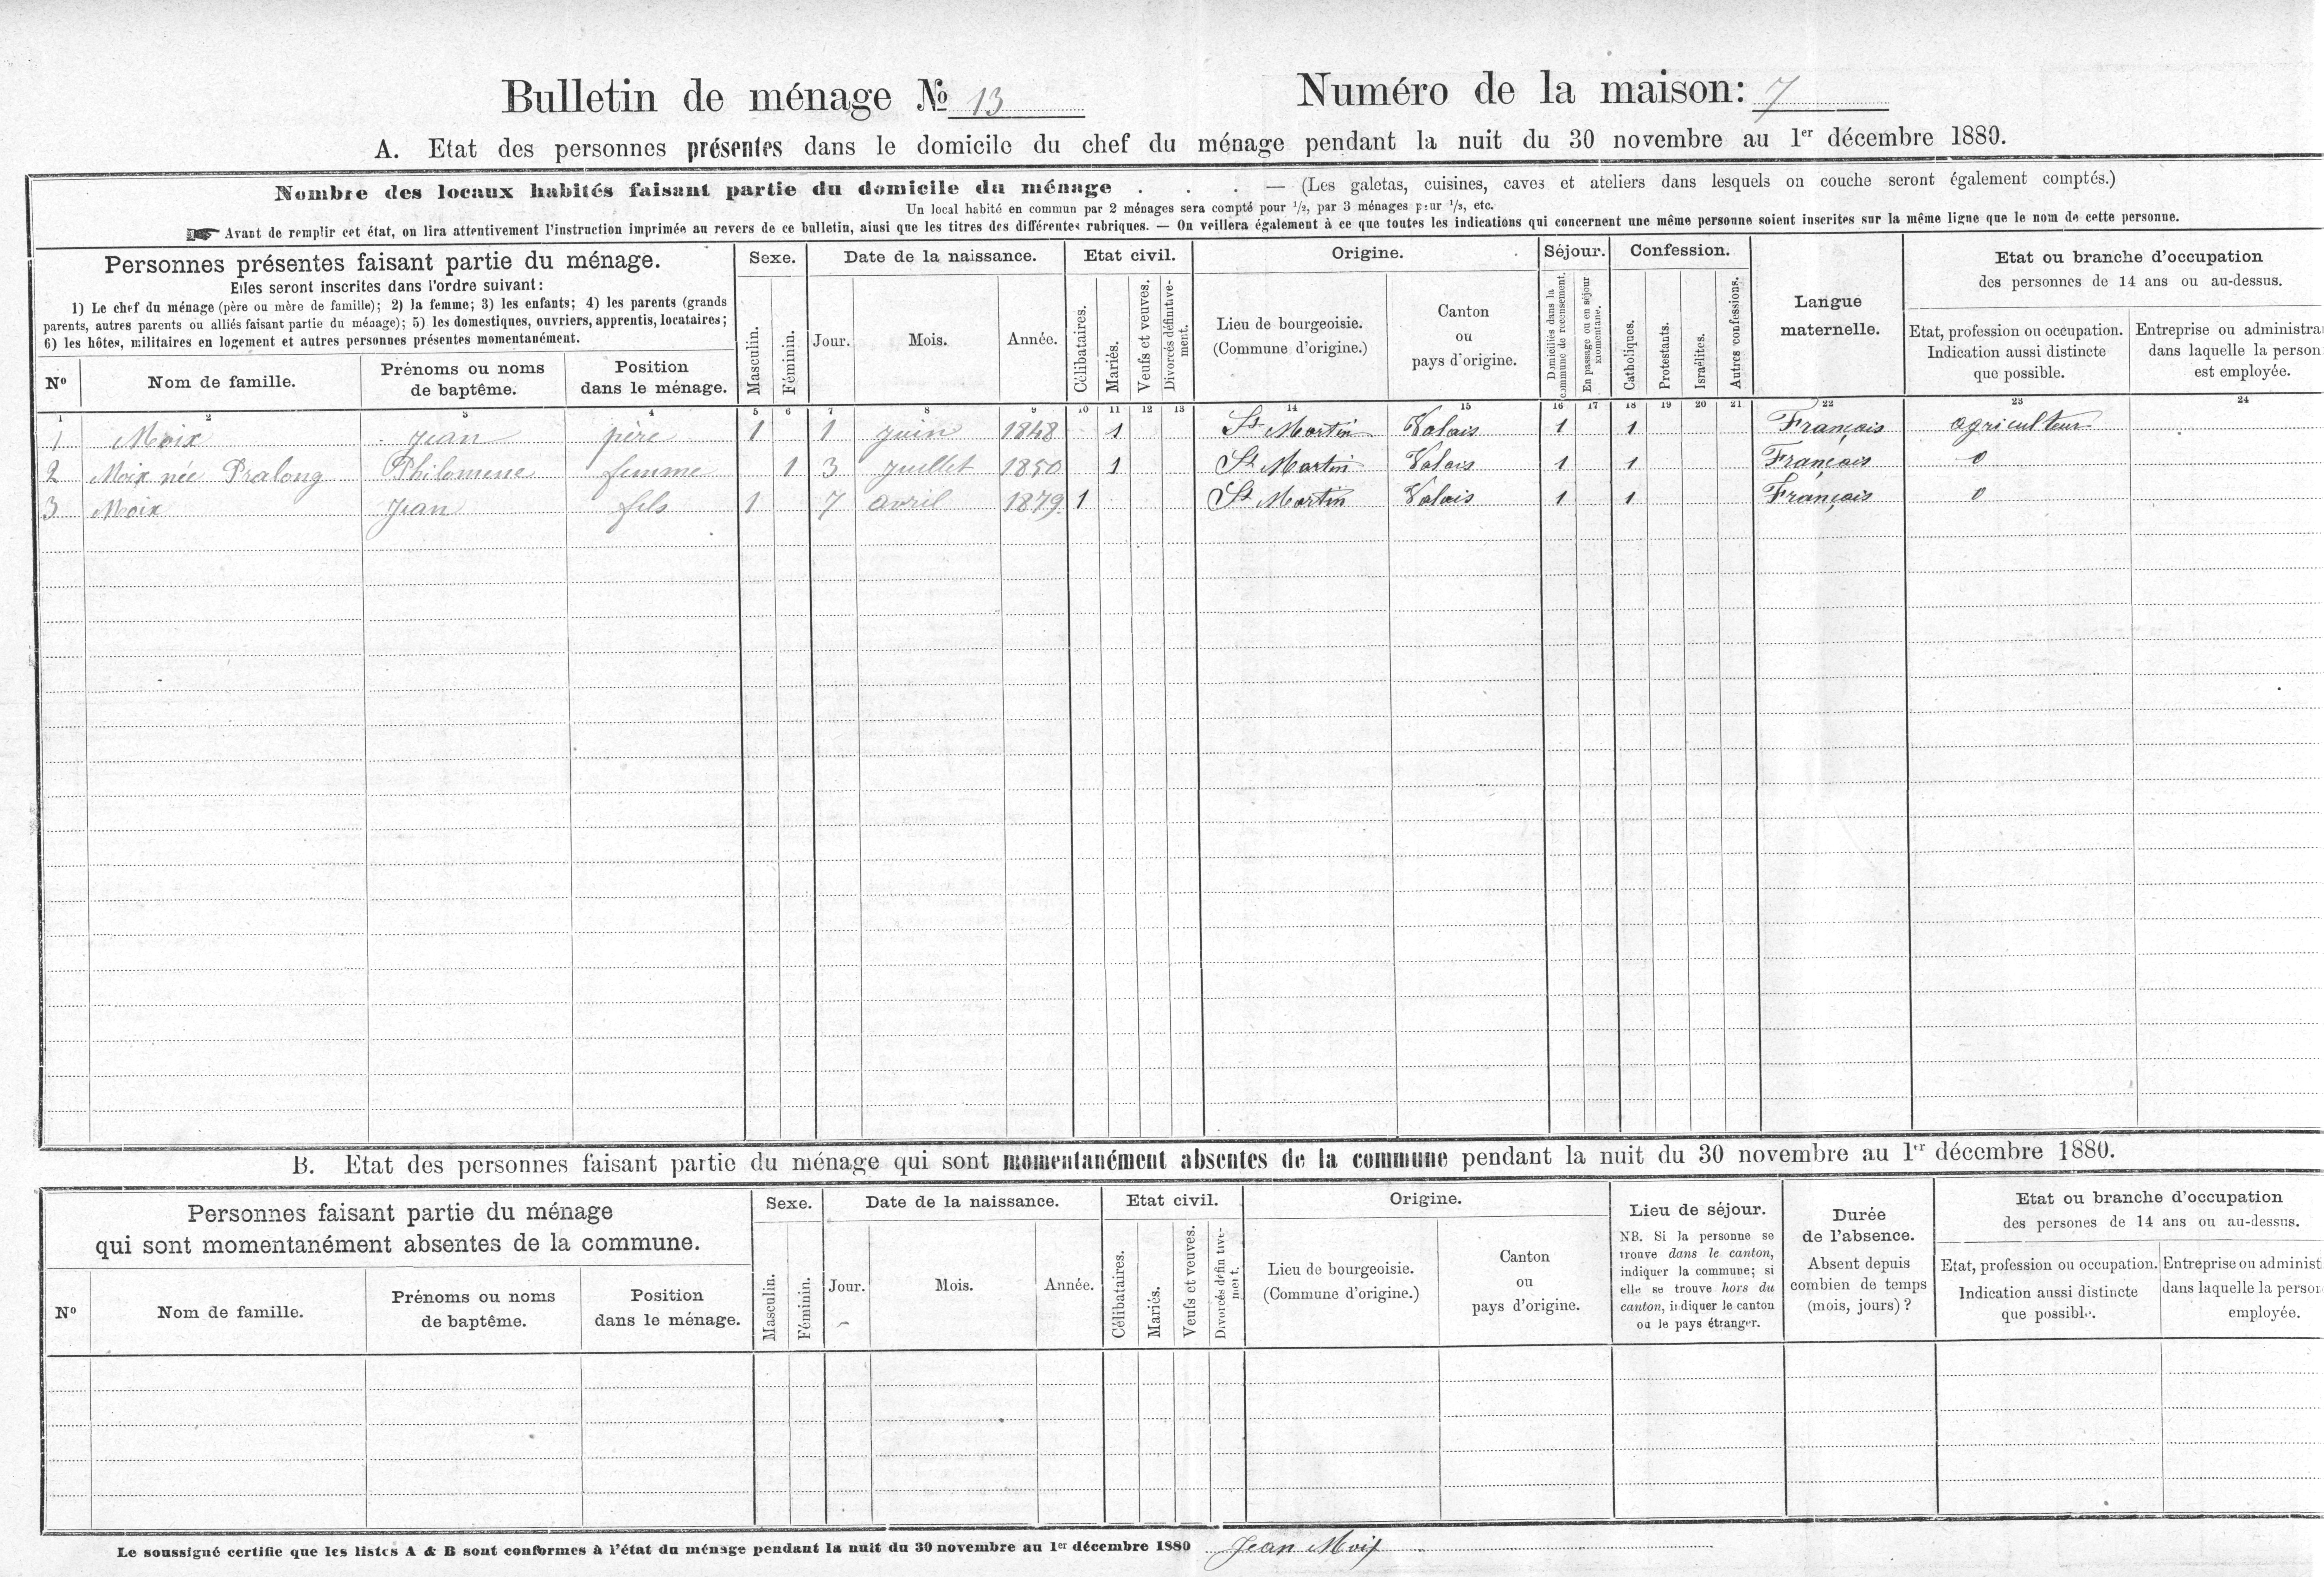 Bulletin de ménage № 13 Numéro de la maison: 7
A. Etat des personnes présentes dans le domicile du chef du ménage pendant la nuit du 30 novembre au 1er décembre 1880.
Nombre des locaux habités faisant partie du domicile du ménage . . . — (Les galetas, cuisines, caves et ateliers dans lesquels on couche seront également comptés.)
Un local habité en commun par 2 ménages sera compté pour 1/2, par 3 ménages pour 1/3, etc.
☞ Avant de remplir cet état, on lira attentivement l'instruction imprimée au revers de ce bulletin, ainsi que les titres des différentes rubriques. — On veillera également à ce que toutes les indications qui concernent une même personne soient inscrites sur la même ligne que le nom de cette personne.
Personnes présentes faisant partie du ménage.
Elles seront inscrites dans l'ordre suivant:
1) Le chef du ménage (père ou mère de famille); 2) la femme; 3) les enfants; 4) les parents (grands
parents, autres parents ou alliés faisant partie du ménage); 5) les domestiques, ouvriers, apprentis, locataires;
6) les hôtes, militaires en logement et autres personnes présentes momentanément.
Nº
Nom de famille.
Prénoms ou noms
de baptême.
Position
dans le ménage.
Sexe.
Masculin.
Féminin.
Date de la naissance.
Jour.
Mois.
Année.
Etat civil.
Célibataires.
Mariés.
Veufs et veuves.
Divorcés définitive-
ment.
Origine.
Lieu de bourgeoisie.
(Commune d'origine.)
Canton
ou
pays d'origine.
Séjour.
Domiciliés dans la
commune de recensement.
En passage ou en séjour
momentané.
Confession.
Catholiques.
Protestants.
Israélites.
Autres confessions.
Langue
maternelle.
Etat ou branche d'occupation
des personnes de 14 ans ou au-dessus.
Etat, profession ou occupation.
Indication aussi distincte
que possible.
Entreprise ou administra
dans laquelle la person
est employée.
1 2 3 4 5 6 7 8 9 10 11 12 13 14 15 16 17 18 19 20 21 22 23 24
1 Moix Jean père 1 1 juin 1848 1 St Martin Valais 1 1 Français agriculteur
2 Moix née Pralong Philomene femme 1 3 juillet 1850 1 St Martin Valais 1 1 Français 0
3 Moix Jean fils 1 7 avril 1879 1 St Martin Valais 1 1 Français 0
B. Etat des personnes faisant partie du ménage qui sont momentanément absentes de la commune pendant la nuit du 30 novembre au 1er décembre 1880.
Personnes faisant partie du ménage
qui sont momentanément absentes de la commune.
Nº
Nom de famille.
Prénoms ou noms
de baptême.
Position
dans le ménage.
Sexe.
Masculin.
Féminin.
Date de la naissance.
Jour.
Mois.
Année.
Etat civil.
Célibataires.
Mariés.
Veufs et veuves.
Divorcés définitive-
ment.
Origine.
Lieu de bourgeoisie.
(Commune d'origine.)
Canton
ou
pays d'origine.
Lieu de séjour.
NB. Si la personne se
trouve dans le canton,
indiquer la commune; si
elle se trouve hors du
canton, indiquer le canton
ou le pays étranger.
Durée
de l'absence.
Absent depuis
combien de temps
(mois, jours) ?
Etat ou branche d'occupation
des persones de 14 ans ou au-dessus.
Etat, profession ou occupation.
Indication aussi distincte
que possible.
Entreprise ou administ
dans laquelle la perso
employée.
Le soussigné certifie que les listes A & B sont conformes à l'état du ménage pendant la nuit du 30 novembre au 1er décembre 1880 Jean Moix